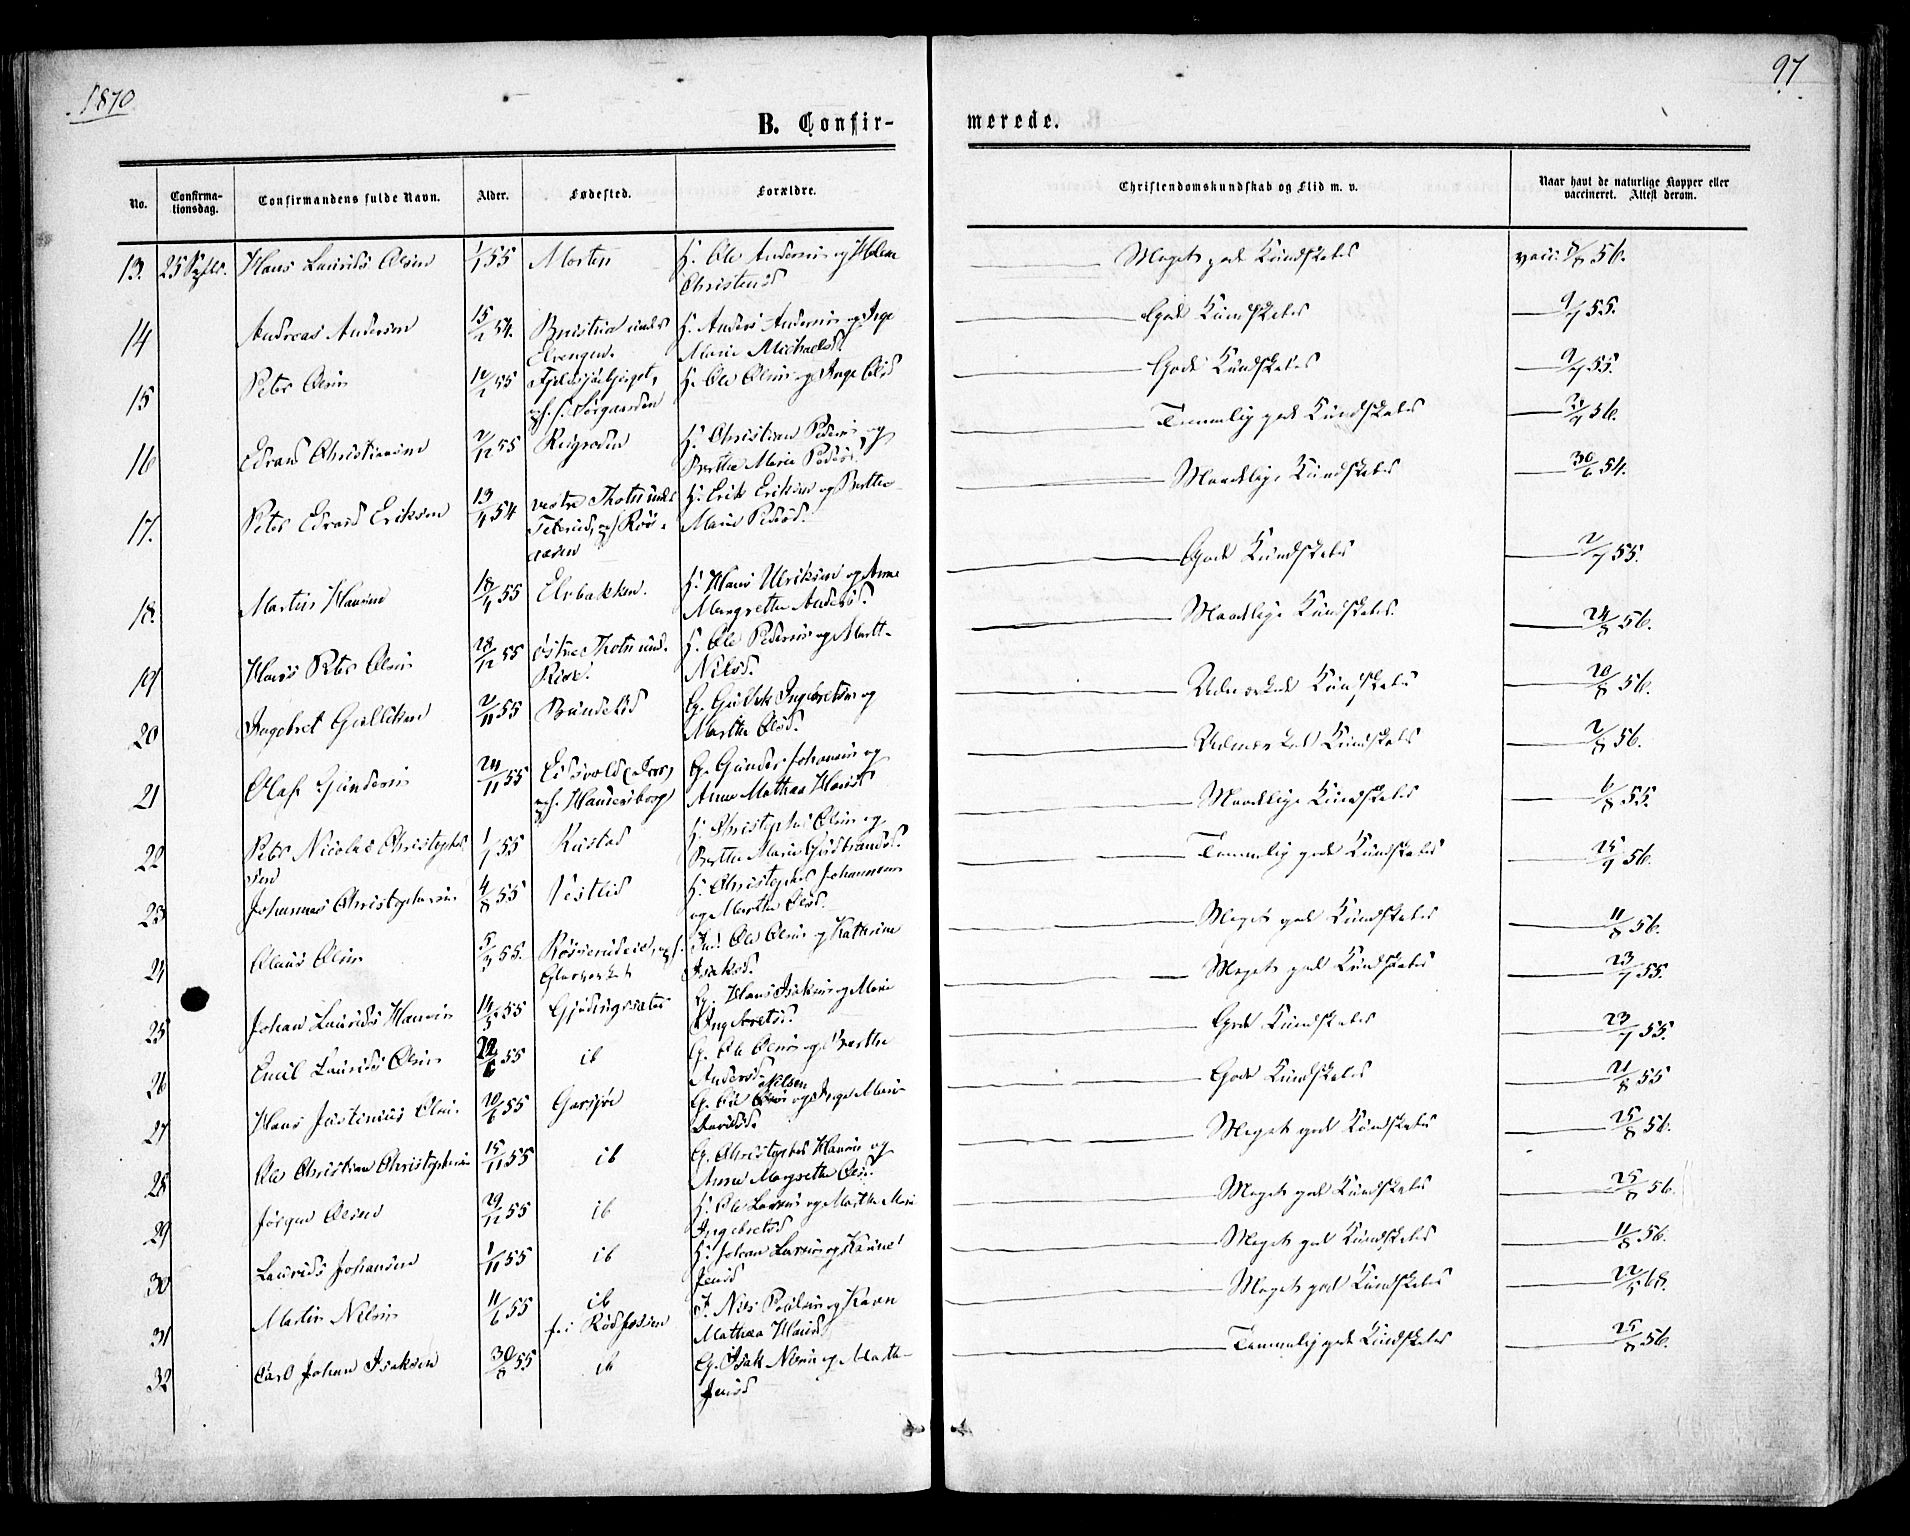 1870
97
B. Confir-
merede.
No.
Confirma-
tionsdag.
Confirmandens fulde Navn.
Alder.
Fødested.
Forældre.
Christendomskundskab og Flid m. v.
Naar havt de naturlige Kopper eller
vaccineret. Attest derom.
13. Hans Laurids Olsen 1/1 55 Morten H. Ole Andersen og Helene
Christensd
Meget gode Kundskaber vacc. 56.
14 Andreas Andersen 54. H. Anders Andersen og Inge
Marie Michaelsd.
Gode Kundskaber 9/7 55.
15 Peter Olsen 55 H. Ole Olsen og Inge Olsd
Gode Kundskaber 9/7 55.
16 Edvard Christiansen 2/12 55 H. Christian Pedersen og
Berthe Marie Pedersd.
Temmelig gode Kundskaber 56.
17. Peter Edvard Eriksen 13/4 54 vestre Thoten
H. Erik Eriksen og Berthe
Marie Pedersd.
Maadelige Kundskaber 30/6 54.
18. Martin Hansen 18/4 55 Elvbakken. H. Hans Ulriksen og Anne
Margrethe Andersd.
Gode Kundskaber 2/7 55.
19 Hans Peter Olsen 28/12 55 østre Thoten
H. Ole Pedersen og Marthe
Nilsd.
Maadelige Kundskaber. 24/8 56.
20 Ingebret Gulliksen 2/11 55 G. Gullik Ingebretsen og
Marthe Olsd.
Udmærket Kundskaber 20/8 56.
21 Olaf Gundersen 24/11 55 Eidsvold
G. Gunder Johansen og
Anne Mathea Hansd
Udmærket Kundskaber 2/8 56.
22 Peter Nicolai Christopher
sen 1/7 55 Rustad H. Christopher Olsen og
Berthe Marie Guldbrandsd.
Maadelige Kundskaber 6/8 55.
23 Johannes Christophersen 4/8 55 Vestlid H. Christopher Johannesen
og Marthe Olsd.
Temmelig gode Kundskaber 25/9 56.
24 Olaus Olsen 5/3 55. Ole Olsen og Kathrine
Isaksd.
Meget gode Kundskaber 11/8 56.
25 Johan Laurids Hansen 14/3 55 G. Hans Isaksen og Marie
Ingebretsd.
Meget gode Kundskaber 23/7 55.
26 Emil Laurids Olsen 55 ib G. Ole Olsen og Berthe
Andersd
Gode Kundskaber 23/7 55.
27 Hans Justinius Olsen 20/6 55 Garsjøe G. Ole Nilsen og Inge Marie
Davidsd.
Gode Kundskaber 21/8 55
28 Ole Christian Christophersen 15/11 55 ib G. Christopher Hansen og
Anne Margrethe Olsd.
Meget gode Kundskaber 25/8 56.
29 Jørgen Olsen 29/12 55 ib H. Ole Larsen og Marthe Marie
Ingebretsd
Meget gode Kundskaber 25/8 56.
30 Laurids Johansen 1/11 55 ib H. Johan Larsen og Karine
Jensd
Meget gode Kundskaber 11/8 56.
31 Martin Nilsen 11/6 55 ib
f. i Rødfossen
Nils Paulsen og Karen
Mathea Hansd
Meget gode Kundskaber 22/5 68.
32 Carl Johan Isaksen 30/8 55 ib G. Isak Nilsen og Marthe
Jensd
Temmelig gode Kundskaber 25/8 56.